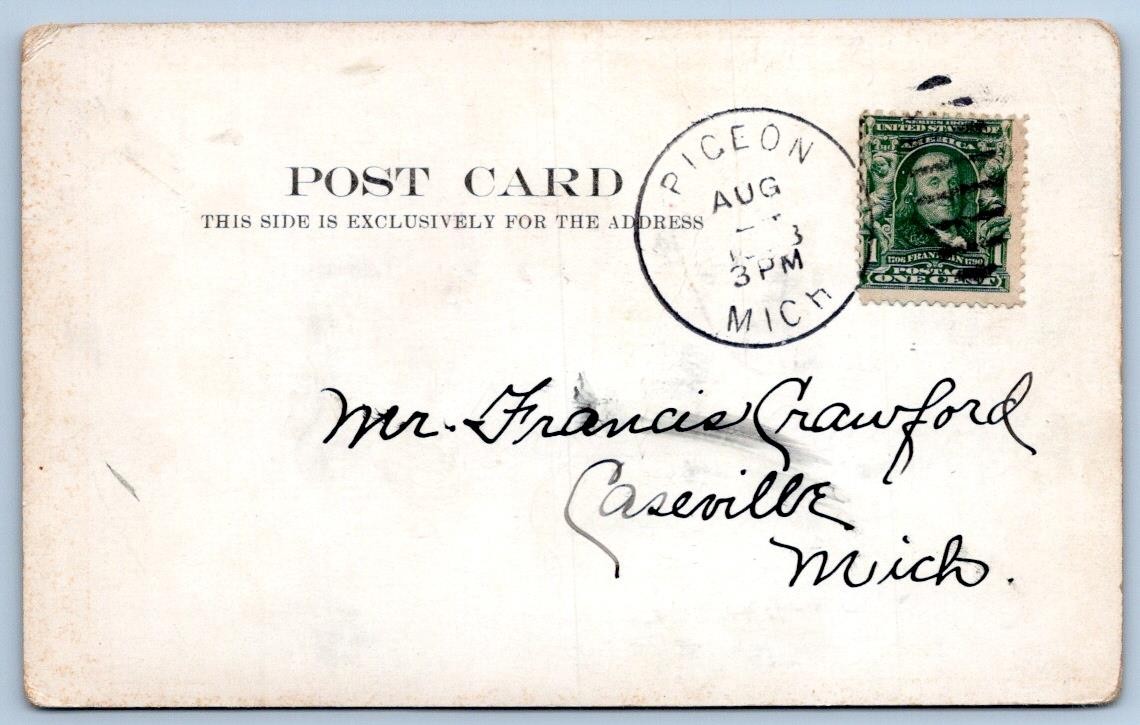 POST CARD
THIS SIDE IS EXCLUSIVELY FOR THE ADDRESS
PIGEON
AUG
3 PM
MICH
UNITED STATES OF
AMERICA
1 1706 FRANKLIN 1790 1
POSTAGE
ONE CENT
Mr. Francis Crawford
Caseville
Mich.